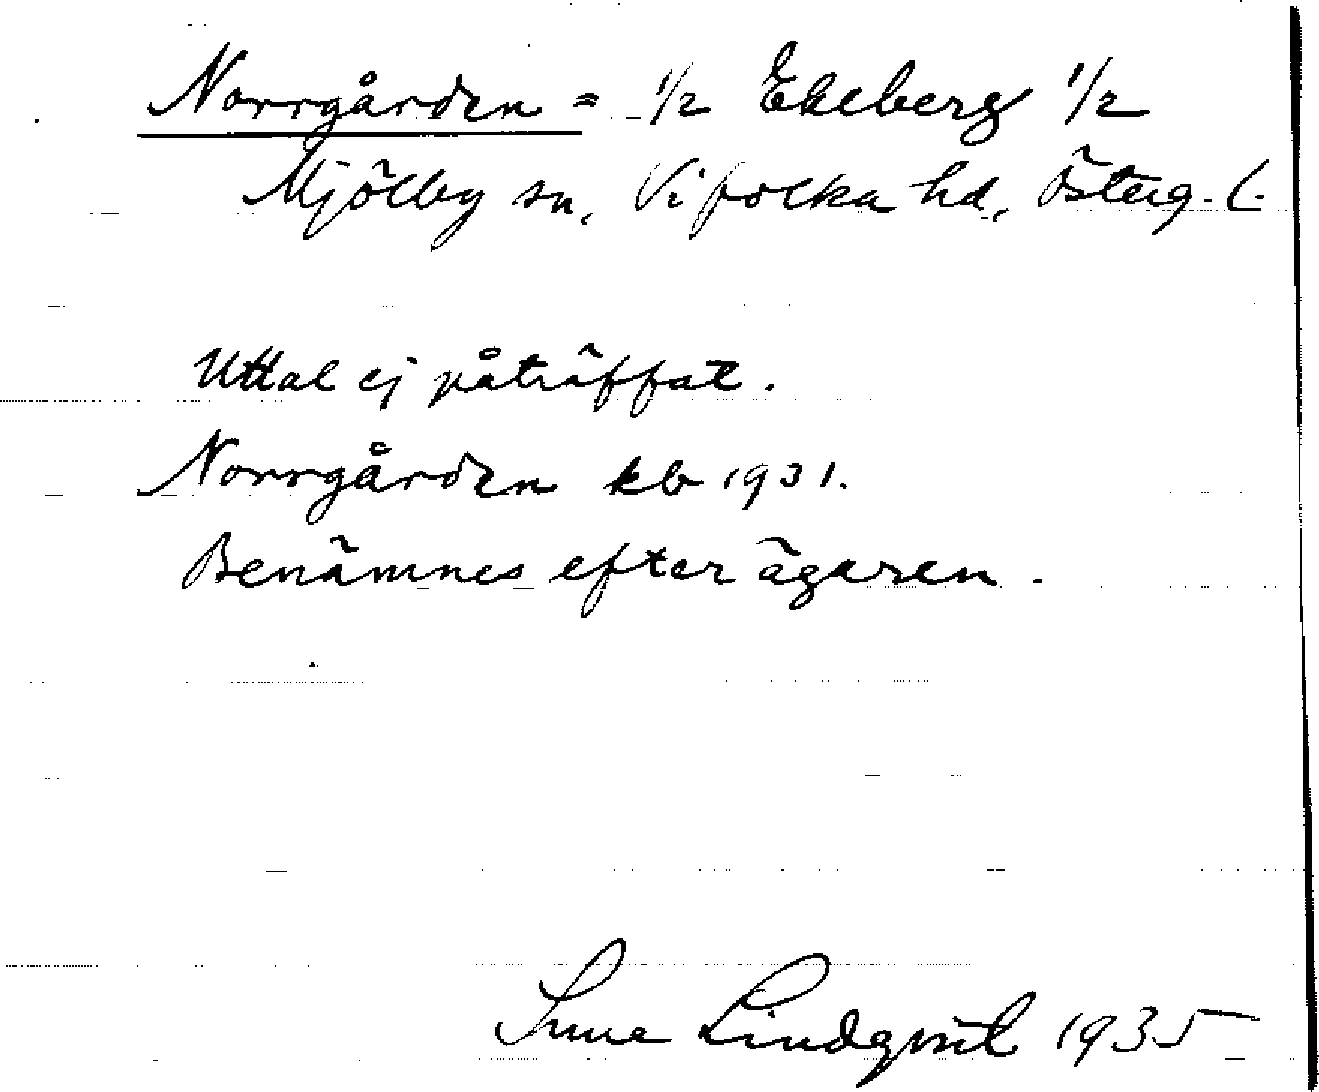 Norrgården = 1/2 Ekeberg 1/2
Mjölby sn, Vifolka hd, Österg. l.
Uttal ej påträffat.
Norrgården kb 1931.
Benämnes efter ägaren.
Sune Lindqvist 1935